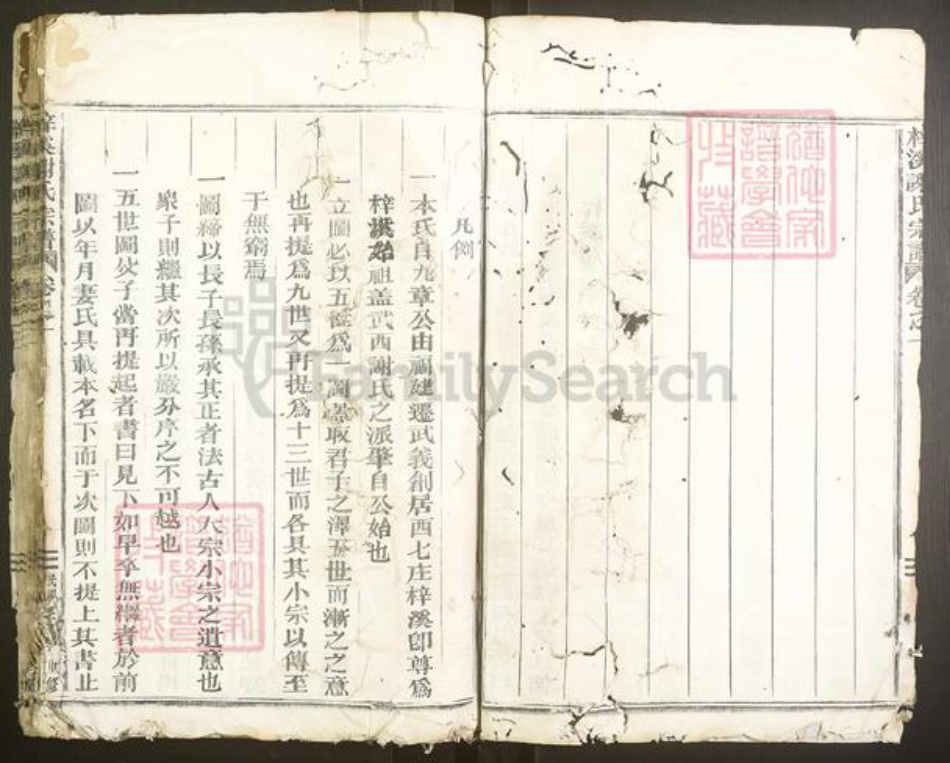 梓溪謝氏宗譜
卷之一
凡例
一本氏自九章公由福建遷武義創居西七庄梓溪卽尊爲
梓溪始祖盖武西謝氏之派肇自公始也
一立圖必以五世爲一圖蓋取君子之澤五世而漸之之意
也再提爲九世又再提爲十三世而各具其小宗以傳至
于無窮焉
一圖締以長子長孫承其正者法古人大宗小宗之遺意也
衆子則繼其次所以嚴分序之不可越也
一五世圖父子當再提起者書曰見下如早卒無繼者於前
圖以年月妻氏具載本名下而于次圖則不提上其書止
梓溪謝氏宗譜
卷之一
FamilySearch